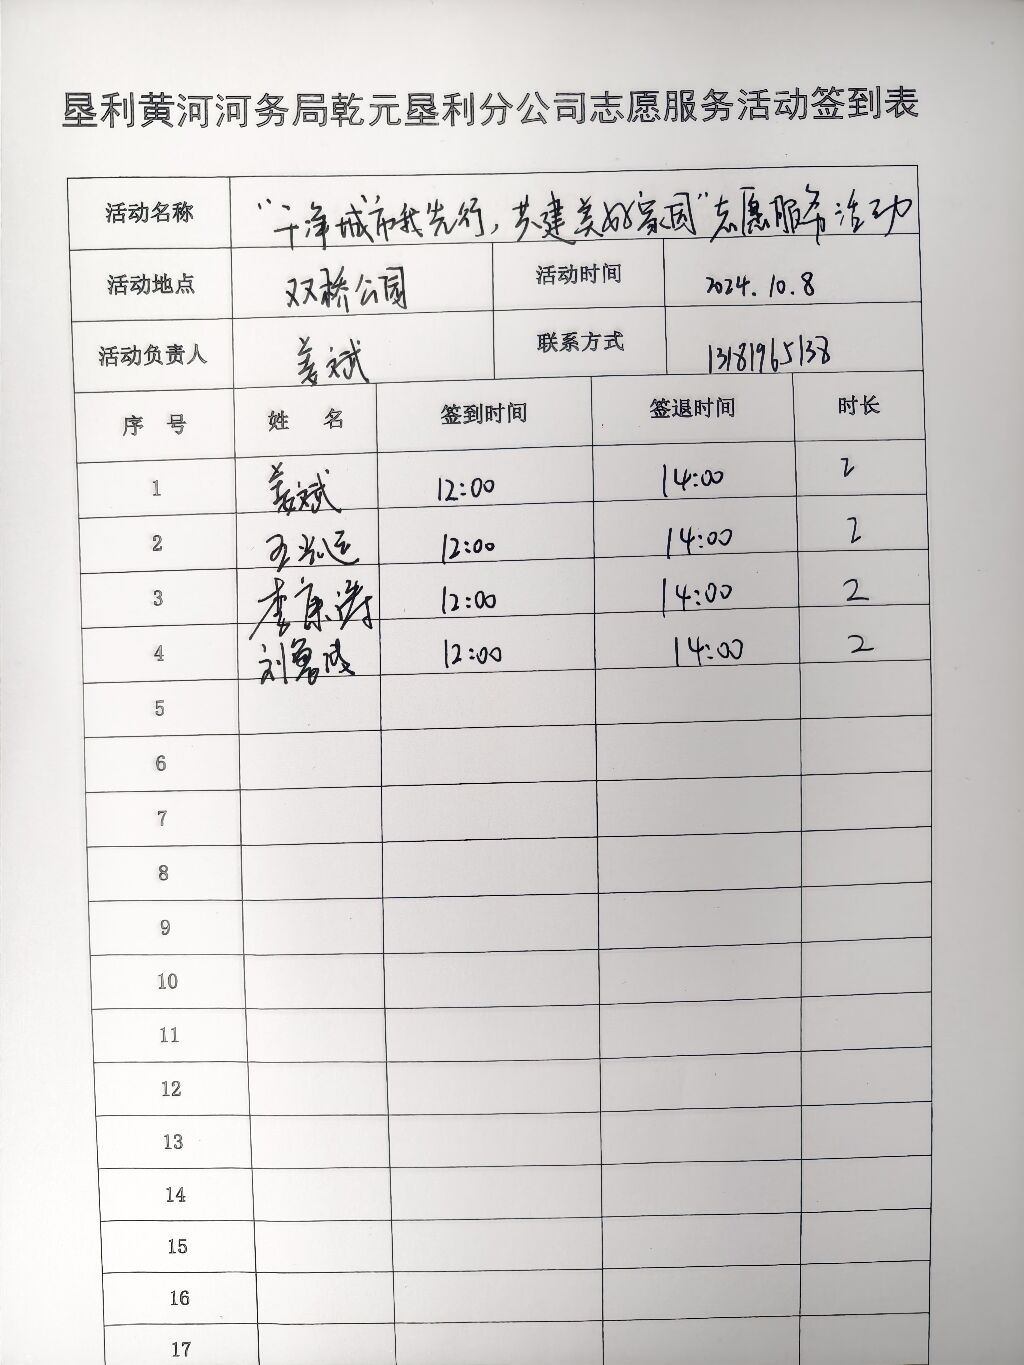 垦利黄河河务局乾元垦利分公司志愿服务活动签到表
活动名称 “干净城市我先行，共建美好家园”志愿服务活动
活动地点 双桥公园 活动时间 2024.10.8
活动负责人 姜斌 联系方式 13181965138
序 号 姓 名 签到时间 签退时间 时长
1 姜斌 12:00 14:00 2
2 12:00 14:00 2
3 李康涛 12:00 14:00 2
4 刘勇 12:00 14:00 2
5
6
7
8
9
10
11
12
13
14
15
16
17